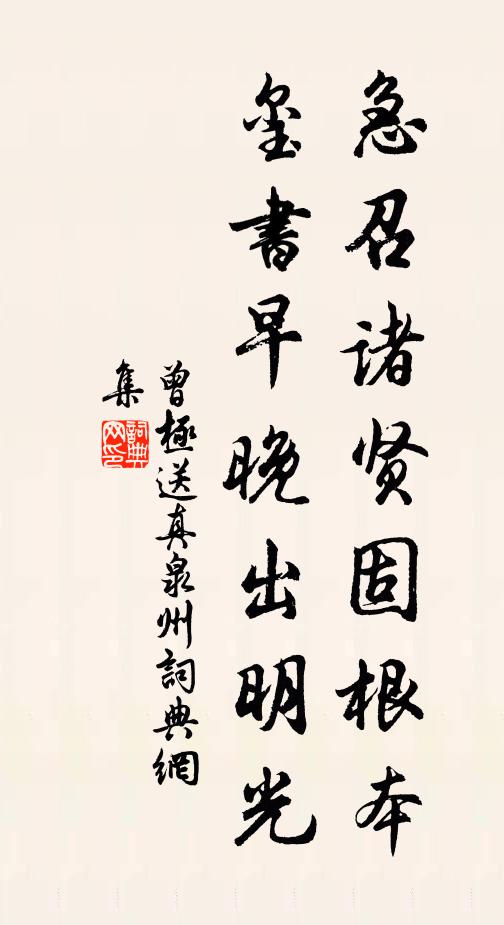 急召诸贤固根本
玺書早晚出明光
曾極送真泉州詞典網
集
詞典
网印